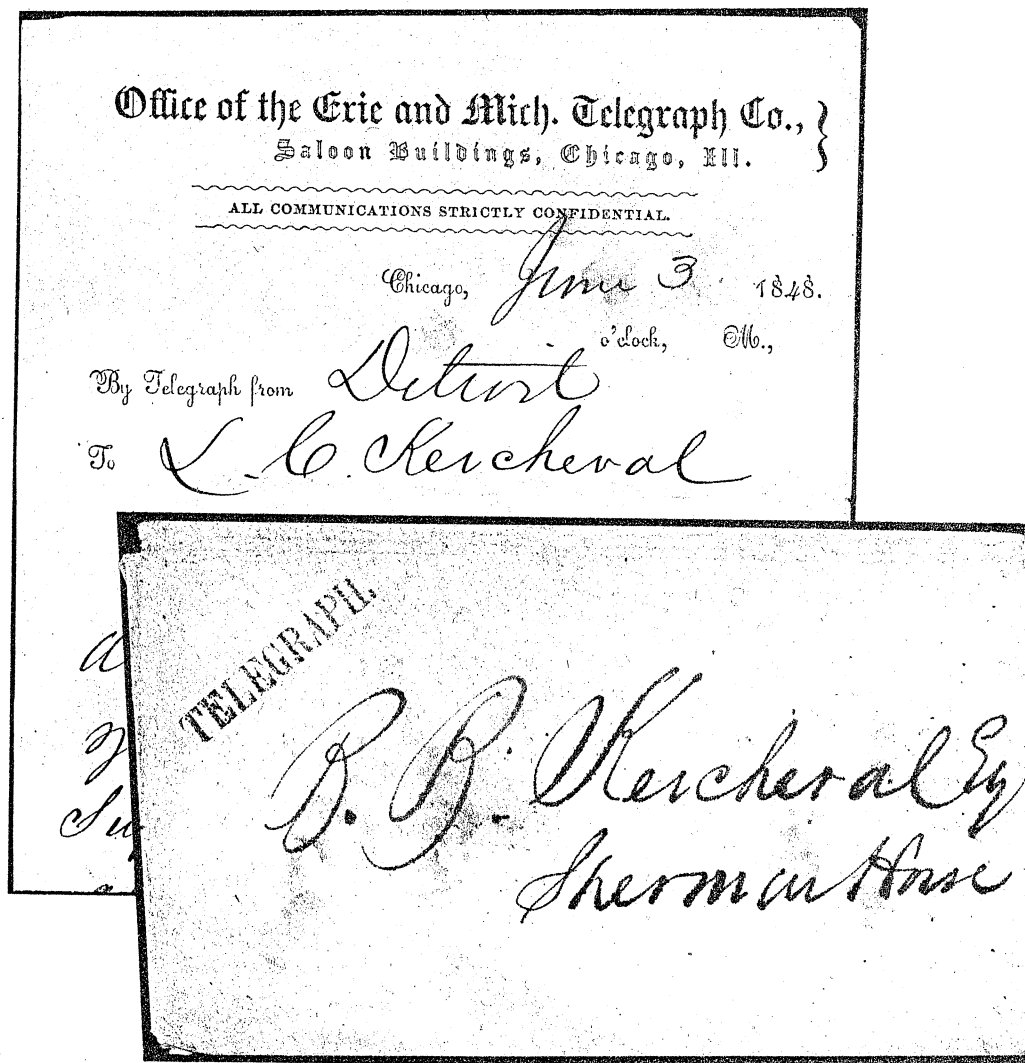 Office of the Erie and Mich. Telegraph Co.,
Saloon Buildings, Chicago, Ill.
ALL COMMUNICATIONS STRICTLY CONFIDENTIAL.
Chicago, June 3 1848.
o'clock, M.,
By Telegraph from Detroit
To L. C. Kercheval
TELEGRAPH.
B. B. Kercheval Esq
Sherman House